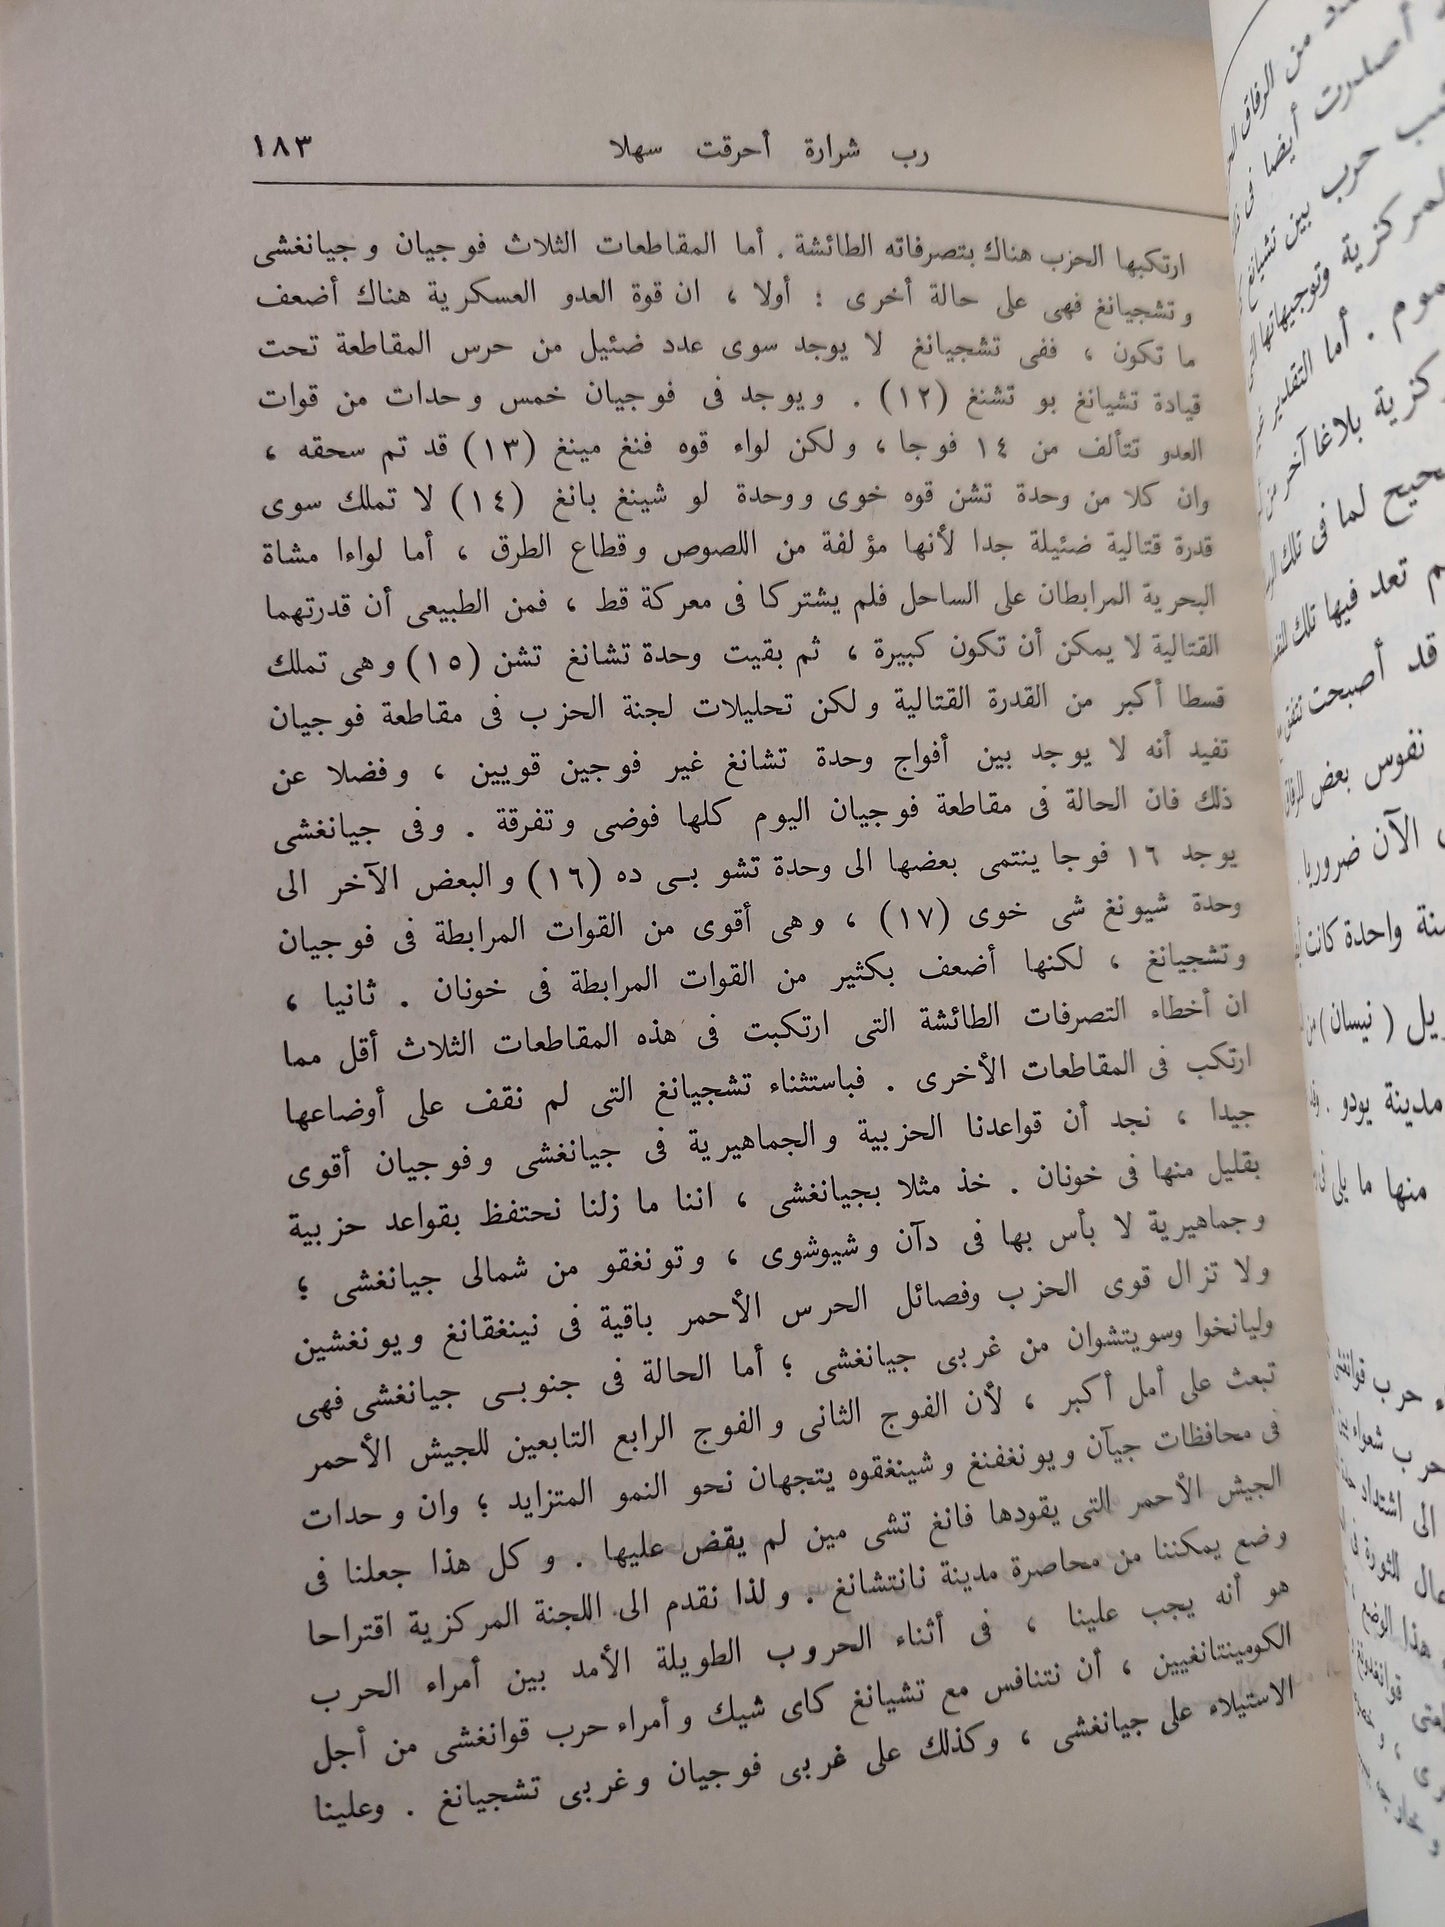 رب شرارة أحرقت سهلا ١٨٣
ارتكبها الحزب هناك بتصرفاته الطائشة . أما المقاطعات الثلاث فوجيان وجيانغشى
وتشجيانغ فهى على حالة أخرى : أولا ، ان قوة العدو العسكرية هناك أضعف
ما تكون ، ففى تشجيانغ لا يوجد سوى عدد ضئيل من حرس المقاطعة تحت
قيادة تشيانغ بو تشنغ (١٢) . ويوجد فى فوجيان خمس وحدات من قوات
العدو تتألف من ١٤ فوجا ، ولكن لواء قوه فنغ مينغ (١٣) قد تم سحقه ،
وان كلا من وحدة تشن قوه خوى ووحدة لو شينغ بانغ (١٤) لا تملك سوى
قدرة قتالية ضئيلة جدا لأنها مؤلفة من اللصوص وقطاع الطرق ، أما لواءا مشاة
البحرية المرابطان على الساحل فلم يشتركا فى معركة قط ، فمن الطبيعى أن قدرتهما
القتالية لا يمكن أن تكون كبيرة ، ثم بقيت وحدة تشانغ تشن (١٥) وهى تملك
قسطا أكبر من القدرة القتالية ولكن تحليلات لجنة الحزب فى مقاطعة فوجيان
تفيد أنه لا يوجد بين أفواج وحدة تشانغ غير فوجين قويين ، وفضلا عن
ذلك فان الحالة فى مقاطعة فوجيان اليوم كلها فوضى وتفرقة . وفى جيانغشى
يوجد ١٦ فوجا ينتمى بعضها الى وحدة تشو بى ده (١٦) والبعض الآخر الى
وحدة شيونغ شى خوى (١٧) ، وهى أقوى من القوات المرابطة فى فوجيان
وتشجيانغ ، لكنها أضعف بكثير من القوات المرابطة فى خونان . ثانيا ،
ان أخطاء التصرفات الطائشة التى ارتكبت فى هذه المقاطعات الثلاث أقل مما
ارتكب فى المقاطعات الأخرى . فباستثناء تشجيانغ التى لم نقف على أوضاعها
جيدا ، نجد أن قواعدنا الحزبية والجماهيرية فى جيانغشى وفوجيان أقوى
بقليل منها فى خونان . خذ مثلا بجيانغشى ، اننا ما زلنا نحتفظ بقواعد حزبية
وجماهيرية لا بأس بها فى دآن وشيوشوى ، وتونغقو من شمالى جيانغشى ؛
ولا تزال قوى الحزب وفصائل الحرس الأحمر باقية فى نينغقانغ ويونغشين
وليانخوا وسويتشوان من غربى جيانغشى ؛ أما الحالة فى جنوبى جيانغشى فهى
تبعث على أمل أكبر ، لأن الفوج الثانى والفوج الرابع التابعين للجيش الأحمر
فى محافظات جيآن ويونغفنغ وشينغقوه يتجهان نحو النمو المتزايد ؛ وان وحدات
الجيش الأحمر التى يقودها فانغ تشى مين لم يقض عليها . وكل هذا جعلنا فى
وضع يمكننا من محاصرة مدينة نانتشانغ . ولذا نقدم الى اللجنة المركزية اقتراحا
هو أنه يجب علينا ، فى أثناء الحروب الطويلة الأمد بين أمراء الحرب
الكومينتانغيين ، أن نتنافس مع تشيانغ كاى شيك وأمراء حرب قوانغشى من أجل
الاستيلاء على جيانغشى ، وكذلك على غربى فوجيان وغربى تشجيانغ . وعلينا